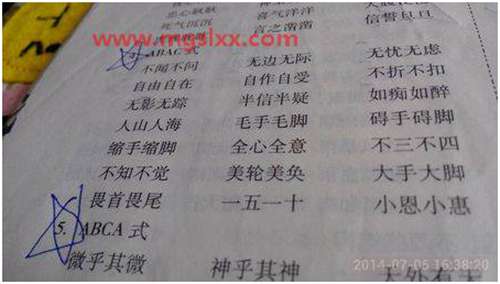 死气沉沉 喜气洋洋
言之凿凿 信誓旦旦
www.mgslxx.com
ABAC 式
不闻不问 无边无际 无忧无虑
自由自在 自作自受 不折不扣
无影无踪 半信半疑 如痴如醉
人山人海 毛手毛脚 碍手碍脚
缩手缩脚 全心全意 不三不四
不知不觉 美轮美奂 大手大脚
畏首畏尾 一五一十 小恩小惠
5. ABCA 式
微乎其微 神乎其神 天外有天
2014-07-05 16:38:20